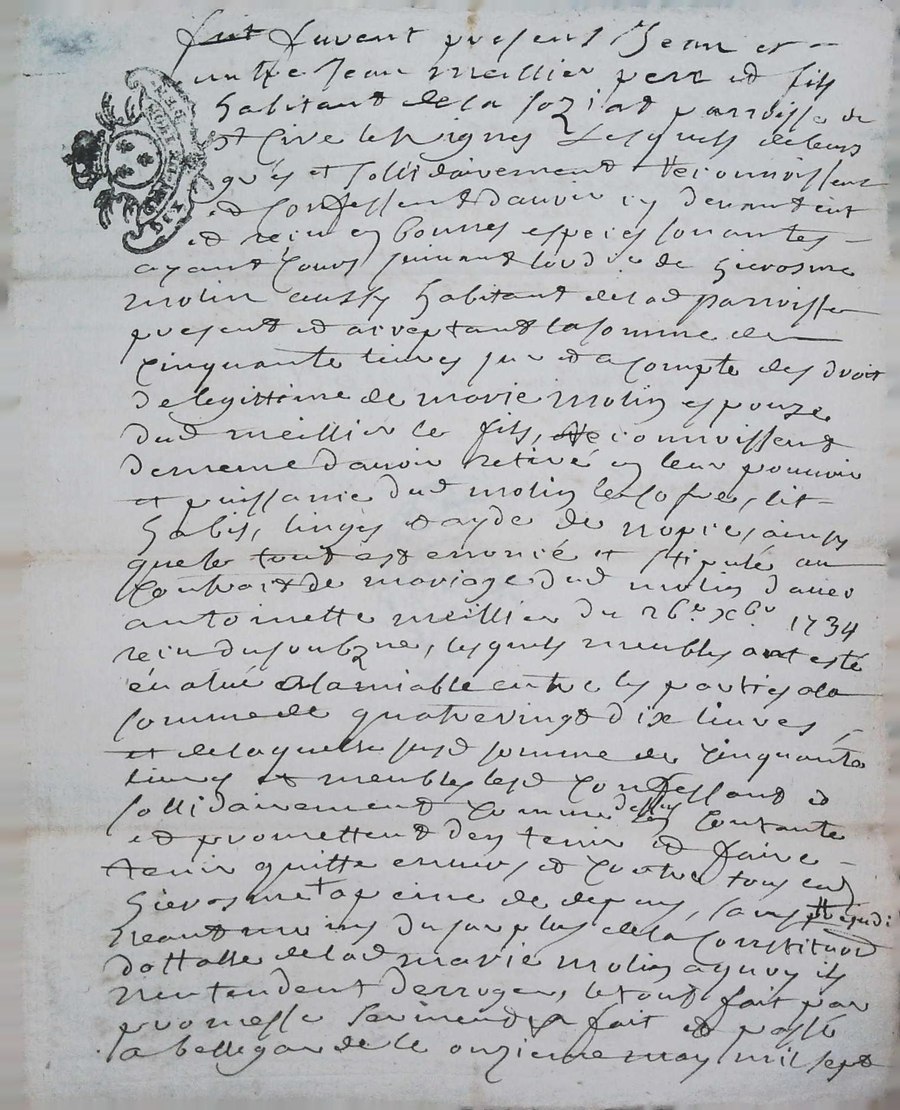 furent presens Jean et
autre Jean meillier pere et fils
habitant de la parroisse de
st Cire les vignes Lesquels de leurs
grés et sollidairement Reconnoissent
et Confessent d'avoir cy devant eut
et receu en bonnes especes sonantes
ayant Cours suivant de hierosme
molin aussy habitant de lad parroisse
present et acceptant la somme de
Cinquante livres sur et a Compte des droit
de legittime de marie molin espouze
dud meillier le fils, Reconnoissent
de meme d'avoir retiré en leur pouvoir
et puissance dud molin le cofre, lit
habis, linges et ayde de nopces, ainsy
que le tout est enoncé et stipulé au
Contract de mariage dud molin d'avec
antoinette meillier du 26e xbre 1734
receu du soubzne, lesquels meubles ont esté
évalué a lamiable entre les parties a la
somme de quatre vingt dix livres
et de laquelle susd somme de Cinquante
livres et meubles lesd Confessent et
sollidairement Comme dessus Contante
et promettent den tenir et faire
tenir quitte envers et Contre tous led
hierosme a peine de depens, sans prejudi
neantmoins du surplus de la Constitution
dottalle de lad marie molin a quoy ils
nentendent derroger, le tout fait par
promesse serment fait et passé
a bellegarde le onzieme may mil sept